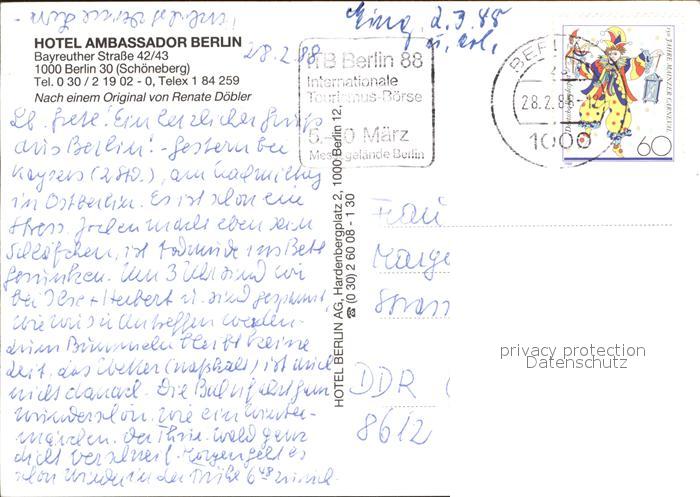 Eing. 2.3.88
u. erl.
HOTEL AMBASSADOR BERLIN
Bayreuther Straße 42/43
1000 Berlin 30 (Schöneberg)
Tel. 0 30 / 2 19 02 - 0, Telex 1 84 259
Nach einem Original von Renate Döbler
28.2.88
Lb. Grete! Ein herzlicher Gruß
aus Berlin! - Gestern bei
Kaysers (2 Std.), am Nachmittag
in Ostberlin. Es ist schon ein
Stress. Jochen macht eben sein
Schläfchen, ist todmüde ins Bett
gesunken. Um 3 Uhr sind wir
bei Ilse + Herbert u. sind gespannt,
wie wir sie antreffen werden.
Zum Bummeln bleibt keine
Zeit. Das Wetter (naßkalt) ist auch
nicht danach. Die Bahnfahrt war
wunderschön. Wie ein Winter-
märchen. Der Thür. Wald ganz
dicht verschneit. Morgen geht es
schon wieder in der Frühe 6 48 zurück.
ITB Berlin 88
Internationale
Tourismus-Börse
5. 10 März
Messegelände Berlin
BERLIN
28.2.88-12
1000
150 JAHRE MAINZER CARNEVAL
Deutsche Bundespost
60
HOTEL BERLIN AG, Hardenbergplatz 2, 1000 Berlin 12,
☎ (0 30) 2 60 08 - 1 30
Frau
Marge
Strass
DDR
8612
privacy protection
Datenschutz